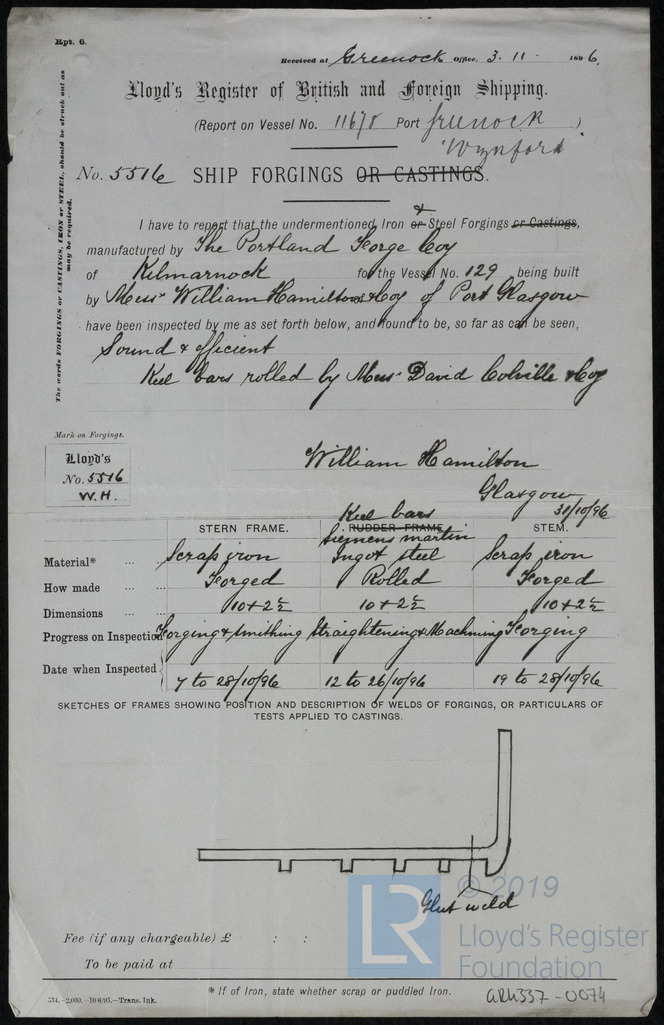 Rpt. 6.
Received at Greenock Office, 3. 11. 1896.
Lloyd's Register of British and Foreign Shipping.
(Report on Vessel No. 11678 Port Greenock)
'Wynford'
No. 5516 SHIP FORGINGS OR CASTINGS.
The words FORGINGS or CASTINGS, IRON or STEEL, should be struck out as may be required.
I have to report that the undermentioned Iron or & Steel Forgings or Castings,
manufactured by The Portland Forge Coy
of Kilmarnock for the Vessel No. 129, being built
by Messrs William Hamilton & Coy of Port Glasgow
have been inspected by me as set forth below, and found to be, so far as can be seen,
Sound & efficient
Keel bars rolled by Messrs David Colville & Coy
Mark on Forgings.
Lloyd's
No. 5516
W.H.
William Hamilton
Glasgow
31/10/96
STERN FRAME. RUDDER FRAME Keel bars STEM.
Material* Scrap iron Siemens martin Ingot steel Scrap iron
How made Forged Rolled Forged
Dimensions 10 x 2½ 10 x 2½ 10 x 2½
Progress on Inspection Forging & Smithing Straightening & Machining Forging
Date when Inspected 7 to 28/10/96 12 to 26/10/96 19 to 28/10/96
SKETCHES OF FRAMES SHOWING POSITION AND DESCRIPTION OF WELDS OF FORGINGS, OR PARTICULARS OF
TESTS APPLIED TO CASTINGS.
Glut weld
© 2019
LR
Lloyd's Register
Foundation
Fee (if any chargeable) £ : :
To be paid at
* If of Iron, state whether scrap or puddled Iron.
554.—2,000.—10/6/95.—Trans. Ink.
GRK337-0074